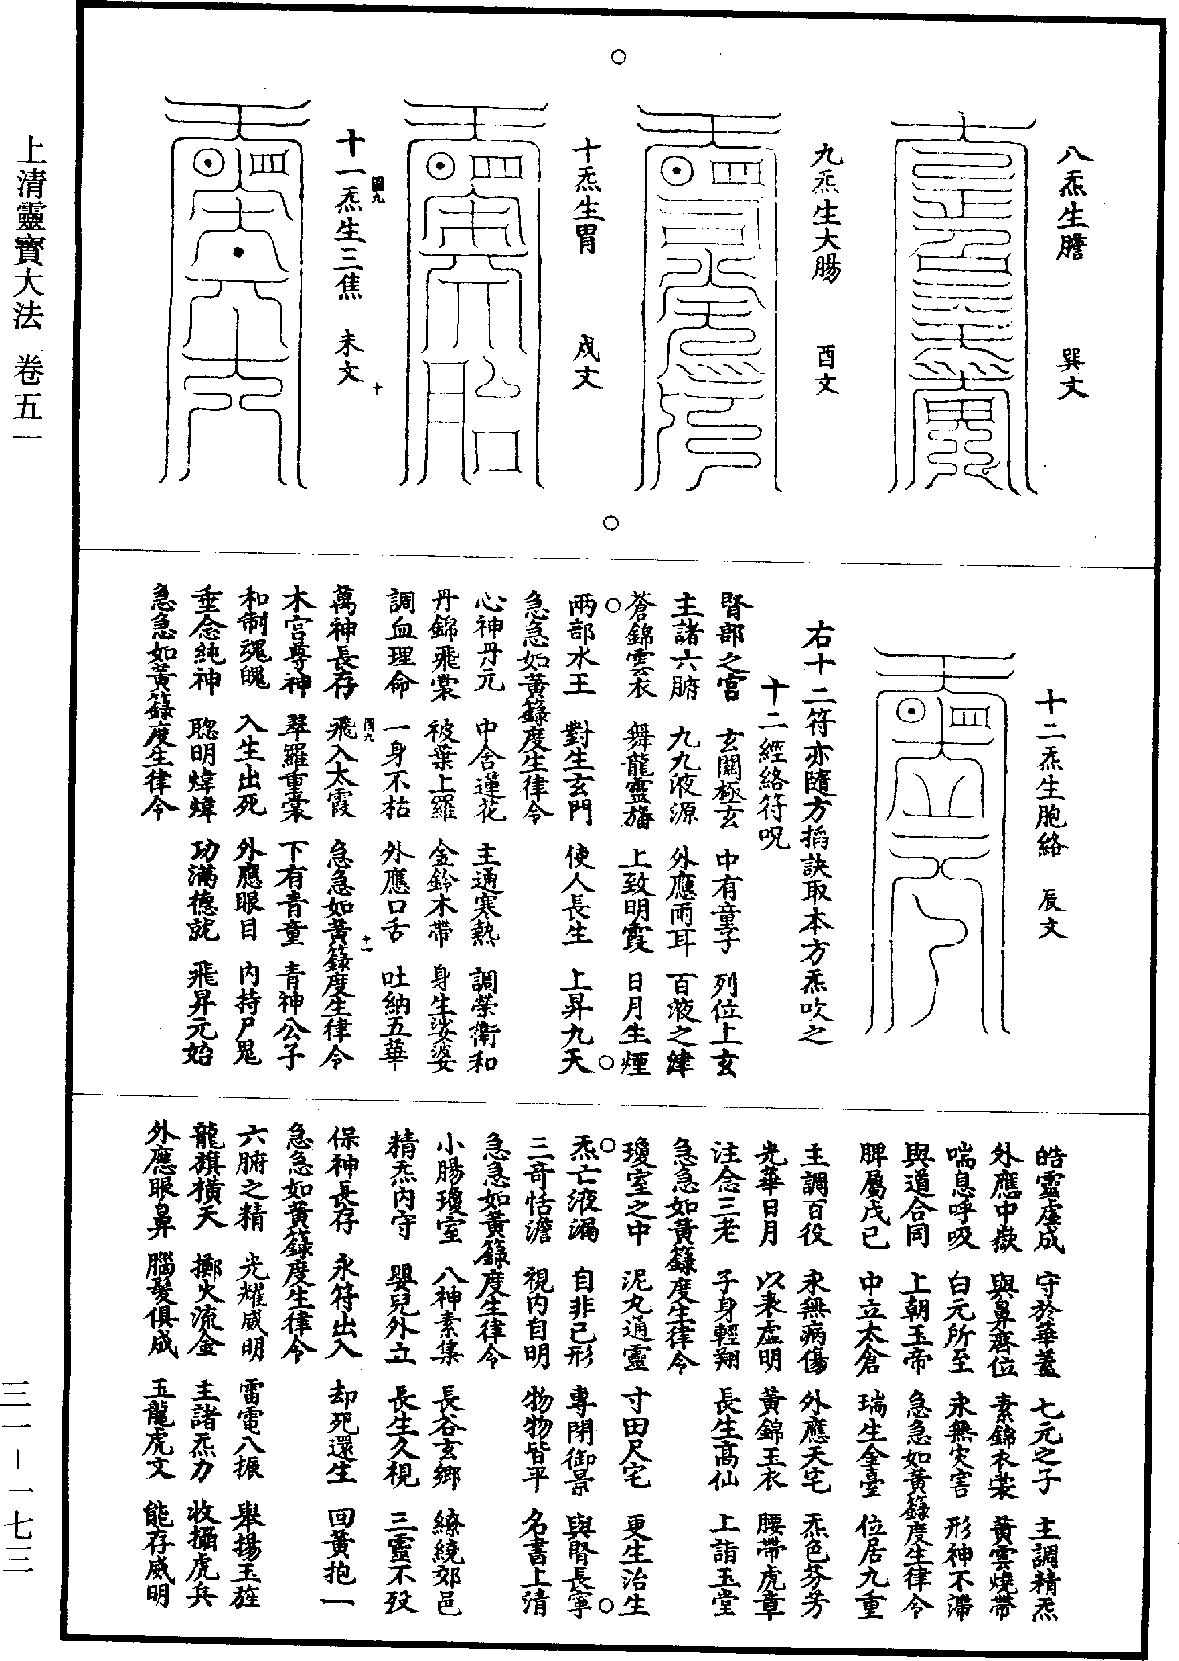 上清靈寶大法 卷五一
三一－一七三
八炁生膽 巽文
九炁生大腸 酉文
十炁生胃 戍文
十一炁生三焦 未文
十二炁生胞絡 辰文
右十二符亦隨方搯訣取本方炁吹之
十二經絡符呪
腎部之宮 玄闕極玄 中有童子 列位上玄
主諸六腑 九九液源 外應雨耳 百液之津
蒼錦雲衣 舞龍靈旛 上致明霞 日月生煙
兩部水王 對生玄門 使人長生 上昇九天
急急如黃籙度生律令
心神丹元 中含蓮花 主通寒熱 調榮衛和
丹錦飛裳 被葉上羅 金鈴木帶 身生婆娑
調血理命 一身不枯 外應口舌 吐納五華
萬神長存 飛入太霞 急急如黃籙度生律令
木宮尊神 翠羅重裳 下有青童 青神公子
和制魂魄 入生出死 外應眼目 內持尸鬼
垂念純神 聰明煒煒 功滿德就 飛昇元始
急急如黃籙度生律令
皓靈虛成 守於華蓋 七元之子 主調精炁
外應中嶽 與鼻齊位 素錦衣裳 黃雲燒帶
喘息呼吸 白元所至 永無灾害 形神不滯
與道合同 上朝玉帝 急急如黃籙度生律令
脾屬戊己 中立太倉 瑞生金臺 位居九重
主調百役 永無病傷 外應天宅 炁色芬芳
光華日月 以表虛明 黃錦玉衣 腰帶虎章
注念三老 子身輕翔 長生高仙 上詣玉堂
急急如黃籙度生律令
瓊室之中 泥丸通靈 寸田尺宅 更生治生
炁亡液漏 自非己形 專閉御景 與腎長寧
三奇恬澹 視內自明 物物皆平 名書上清
急急如黃籙度生律令
小腸瓊室 八神素集 長谷玄鄉 繚繞郊邑
精炁內守 嬰兒外立 長生久視 三靈不歿
保神長存 永符出入 却死還生 回黃抱一
急急如黃籙度生律令
六腑之精 光耀威明 雷電八振 舉揚玉旌
龍旗橫天 擲火流金 主諸炁力 收攝虎兵
外應眼鼻 腦髮俱成 玉龍虎文 能存威明